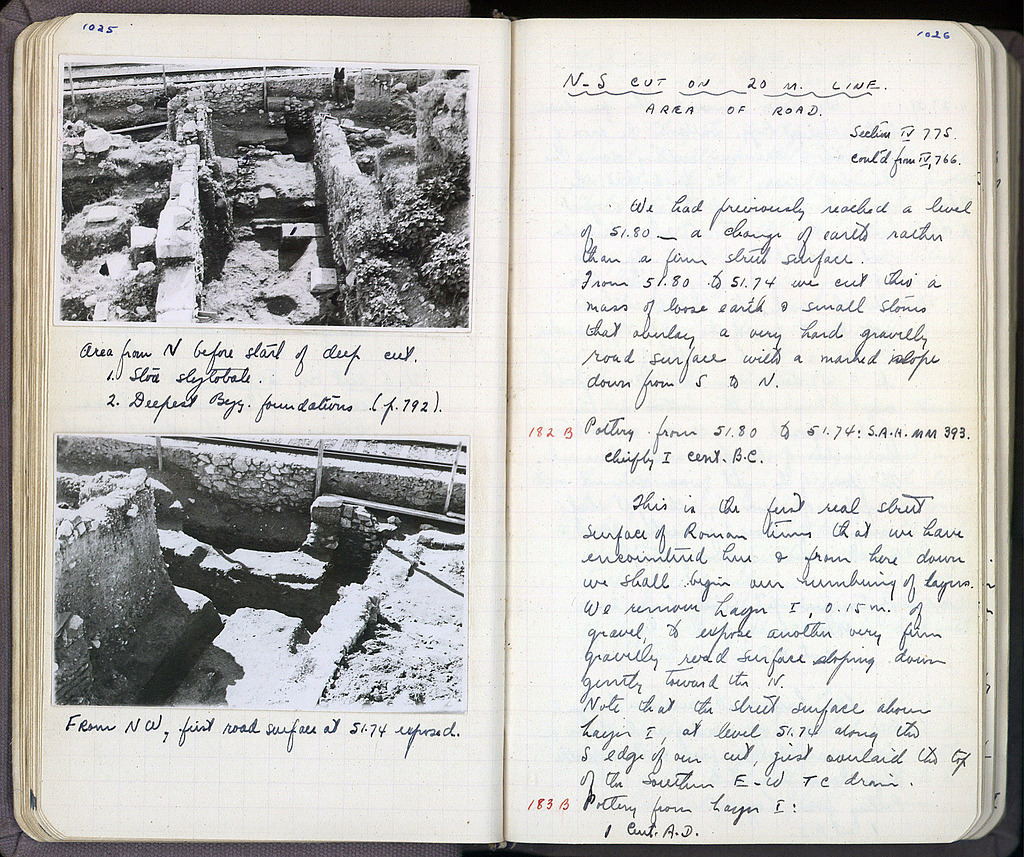 1025
Area from N before start of deep cut.
1. Stoa stylobate.
2. Deepest Byz. foundations. (p. 792).
From NW, first road surface at 51.74 exposed.
1026
N-S CUT ON 20 M. LINE.
AREA OF ROAD.
Section IV 775.
cont'd from IV, 766.
We had previously reached a level
of 51.80 — a change of earth rather
than a firm street surface.
From 51.80 to 51.74 we cut thro a
mass of loose earth & small stones
that overlay a very hard gravelly
road surface with a marked slope
down from S to N.
182 B Pottery from 51.80 to 51.74: S.A.H. MM 393.
chiefly I cent. B.C.
This is the first real street
surface of Roman times that we have
encountered here & from here down
we shall begin our numbering of layers.
We remove Layer I, 0.15 m. of
gravel, to expose another very firm
gravelly road surface sloping down
gently toward the N.
Note that the street surface above
Layer I, at level 51.74 along the
S edge of our cut, just overlaid the top
of the southern E-W TC drain.
183 B Pottery from Layer I:
1 Cent. A.D.